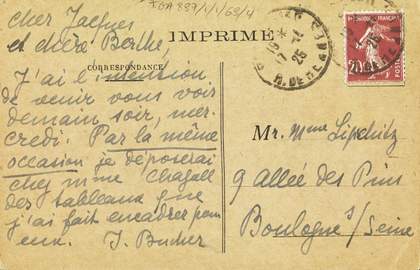 cher Jacques
et chère Berthe,
IMPRIMÉ
CORRESPONDANCE
J'ai l'intention
de venir vous voir
demain soir, mer-
credi. Par la même
occasion je déposerai
chez mme Chagall
des tableaux que
j'ai fait encadrer pour
eux. J. Bucher
Mr. Mme Lipchitz
9 allée des Pins
Boulogne s/Seine